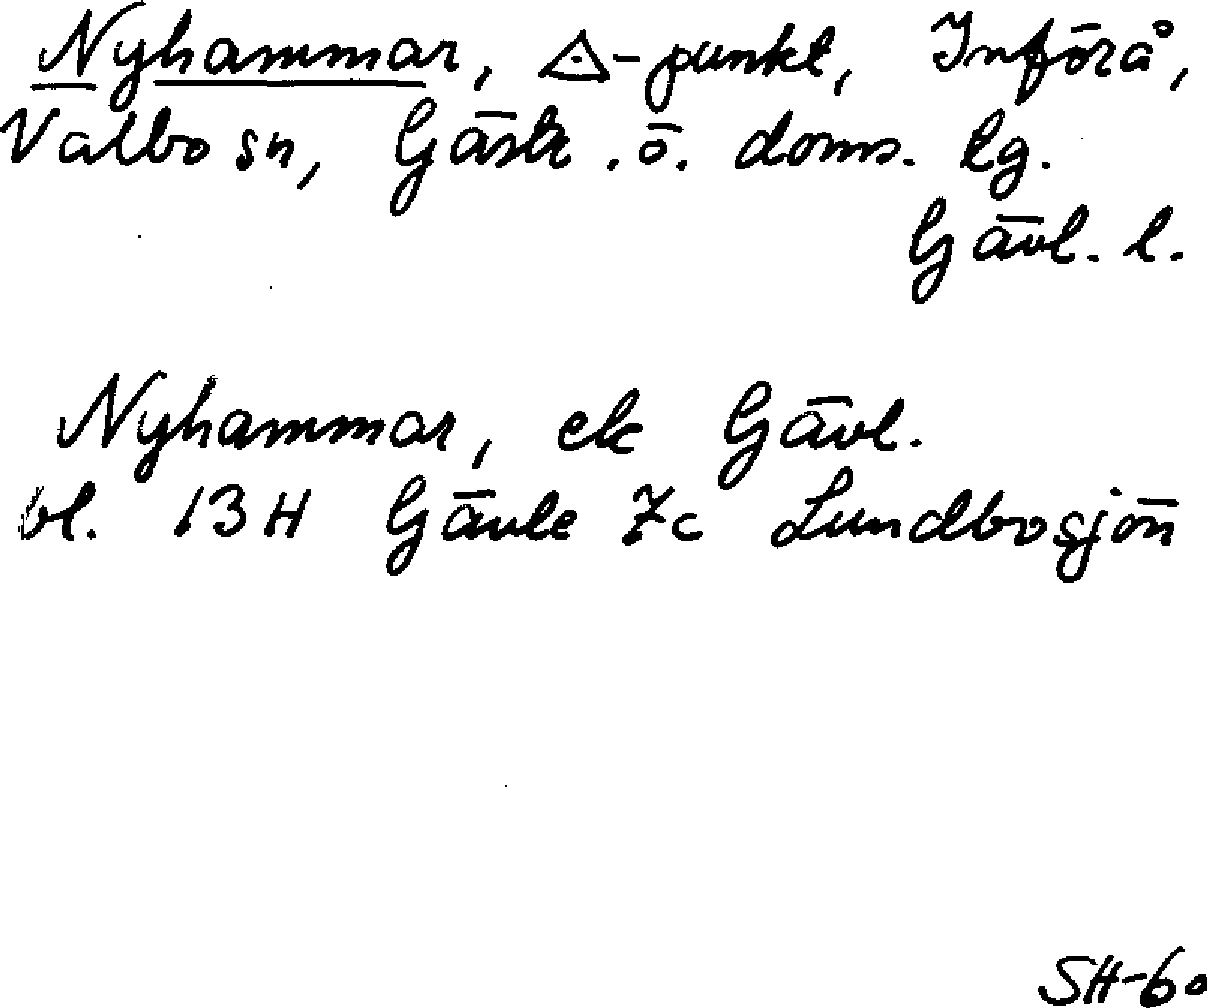 Nyhammar, △-punkt, Införå,
Valbo sn, Gästr. ö. doms. lg.
Gävl. l.
Nyhammar, ek Gävl.
bl. 13H Gävle 7c Lundbosjön
SH-60